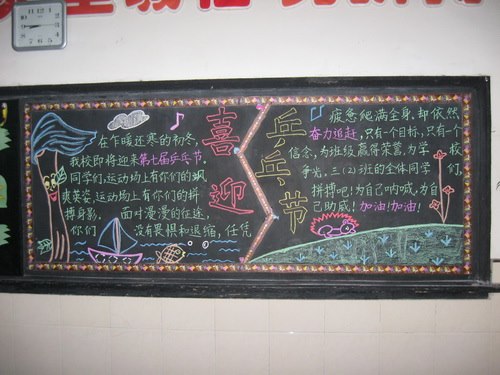 喜迎
乒乓节
在乍暖还寒的初冬,
我校即将迎来第七届乒乓节.
同学们,运动场上有你们的飒
爽英姿,运动场上有你们的拼
搏身影. 面对漫漫的征途,
你们 没有畏惧和退缩,任凭
疲惫绝满全身,却依然
奋力追赶,只有个目标,只有个
信念,为班级赢得荣誉,为学校
争光,三(2)班的全体同学们,
拼搏吧!为自己呐喊,为自
己助威!加油!加油!